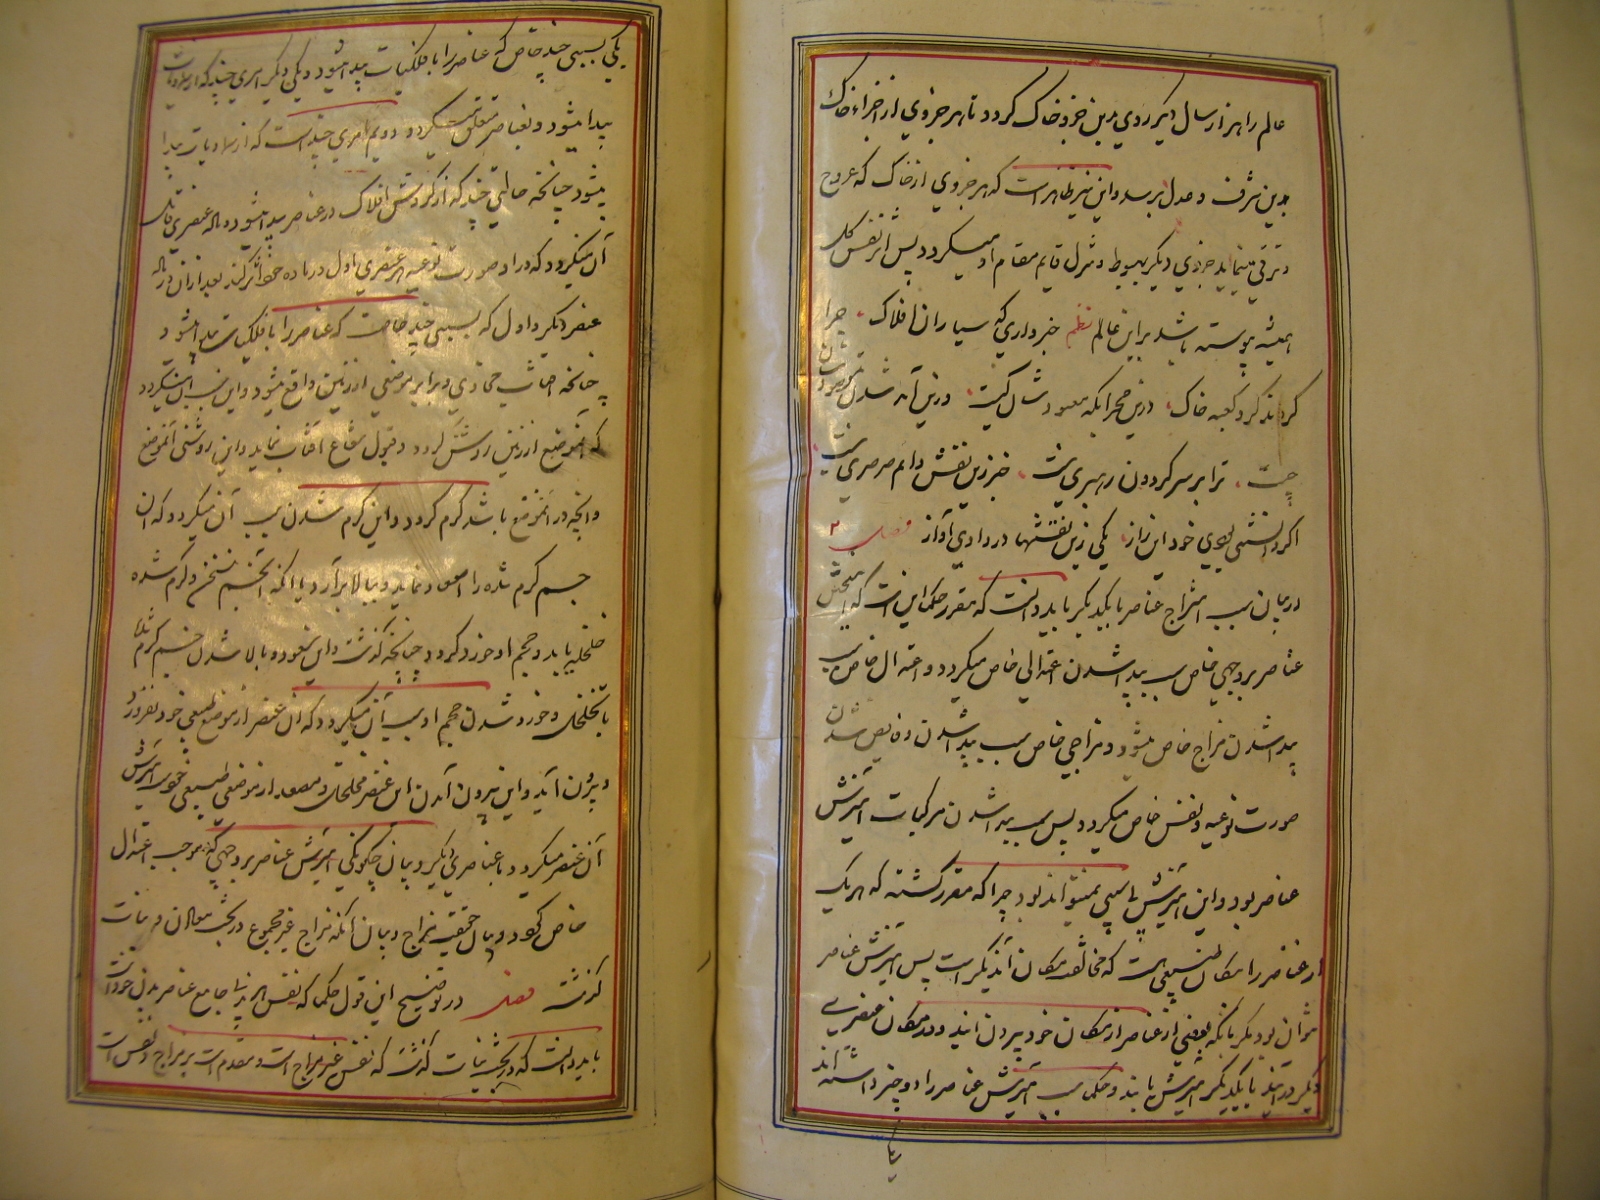 عالم را هر از سال دیگر روی بدین خرد خاک گردد تا هر جزوی از اجزاء خاک
بدین شرف و عدل برسد و این نیز ظاهر است که هر جزوی از خاک که عروج
و ترقی مینماید جزوی دیگر بهبوط و تنزل قایم مقام او میگردد پس اثر نفس کل
همیشه پیوسته باشد براین عالم نظم خبر داری که سیاران افلاک چرا
گردند گرد کعبه خاک درین محرابگه معبودشان کیست وزین آمد شدن مقصودشان
چیست ترا بر سر گردون رهبری نیست جز این نقش دایم سرسری نیست
اگر دانستنی بودی خود این راز یکی زین نقشها در دادی آواز فصل ۲
در بیان سبب امتزاج عناصر با یکدیگر باید دانست که مقرر حکما این است که امتزاج
عناصر بر وجهی خاص سبب پیدا شدن اعتدالی خاص میگردد و اعتدال خاص سبب
پیدا شدن مزاج خاص میشود و مزاجی خاص سبب پیدا شدن و فایض شدن
صورت نوعیه و نفس خاص میگردد پس سبب پیدا شدن مرکبات آمیزش
عناصر بود و این آمیزش بی سببی نمیتواند بود چرا که مقرر گشته که هر یک
از عناصر را مکان طبیعی است که مخالف مکان آن دیگر است پس آمیزش عناصر
نتوان بود مگر بآنکه بعضی از عناصر از مکان خود بیرون آیند و در مکان عنصری
دیگر در آیند با یکدیگر آمیزش یابند و حکما سبب آمیزش عناصر را دو چیز داشته اند
یکی نسبتی چند خاص که عناصر را با فلکیات پیدا میشود و یکی دیگر امری چند که از سماویات
پیدا میشود و بعناصر متعلق میگردد دویم امری چند است که از سماویات پیدا
میشود چنانچه حالتی چند که از گردش افلاک در عناصر پیدا میشود و ماده عنصری قابل
آن میگردد که در او صورت نوعیه عنصری اول در ماده
عنصر دیگر و اول که نسبتی چند خاص است که عناصر را با فلکیات پیدا میشود
چنانچه آفتاب محاذی و برابر موضعی از زمین واقع میشود و این سبب آن میگردد
که آنموضع از زمین روشن گردد و قبول شعاع آفتاب نماید و این روشنی آنموضع
و آنچه در آنموضع باشد گرم گردد و این گرم شدن سبب آن میگردد که آن
جسم گرم شده را صعود نماید و ببالا برآرد یا آنکه آنجسم متسخن و گرم شده
تخلخل یابد و حجم او خورد گردد چنانچه گذشت و این صعود و بالا شدن جسم گرم مثلا
یا تخلخل و خورد شدن حجم او سبب آن میگردد که آن عنصر از موضع طبیعی خود
بیرون آید و این بیرون آمدن این عنصر متخلخل و مصعد از موضعی طبیعی خود آمیزش
آن عنصر میگردد با عناصری دیگر و بیان چگونگی آمیزش عناصر بر وجهی که موجب اعتدال
خاص گردد و بیان حقیقت مزاج و بیان آنکه مزاج غیر مجموع در بحث معادن و نبات
گذشت فصل در توضیح این قول حکما که نفس جامع عناصر بدن خود است
باید دانست که در بحث نبات گذشت که نفس غیر مزاج است و مقدم است بر مزاج و نفس است